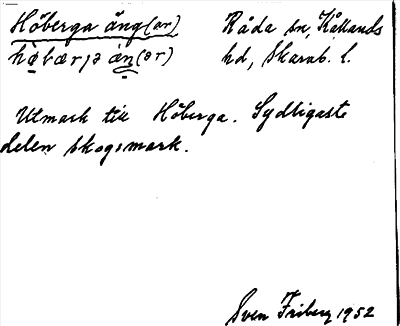 Höberga äng(ar) Råda sn, Kållands
hd, Skarab. l.
Utmark till Höberga. Sydligaste
delen skogsmark.
Sven Friberg 1952